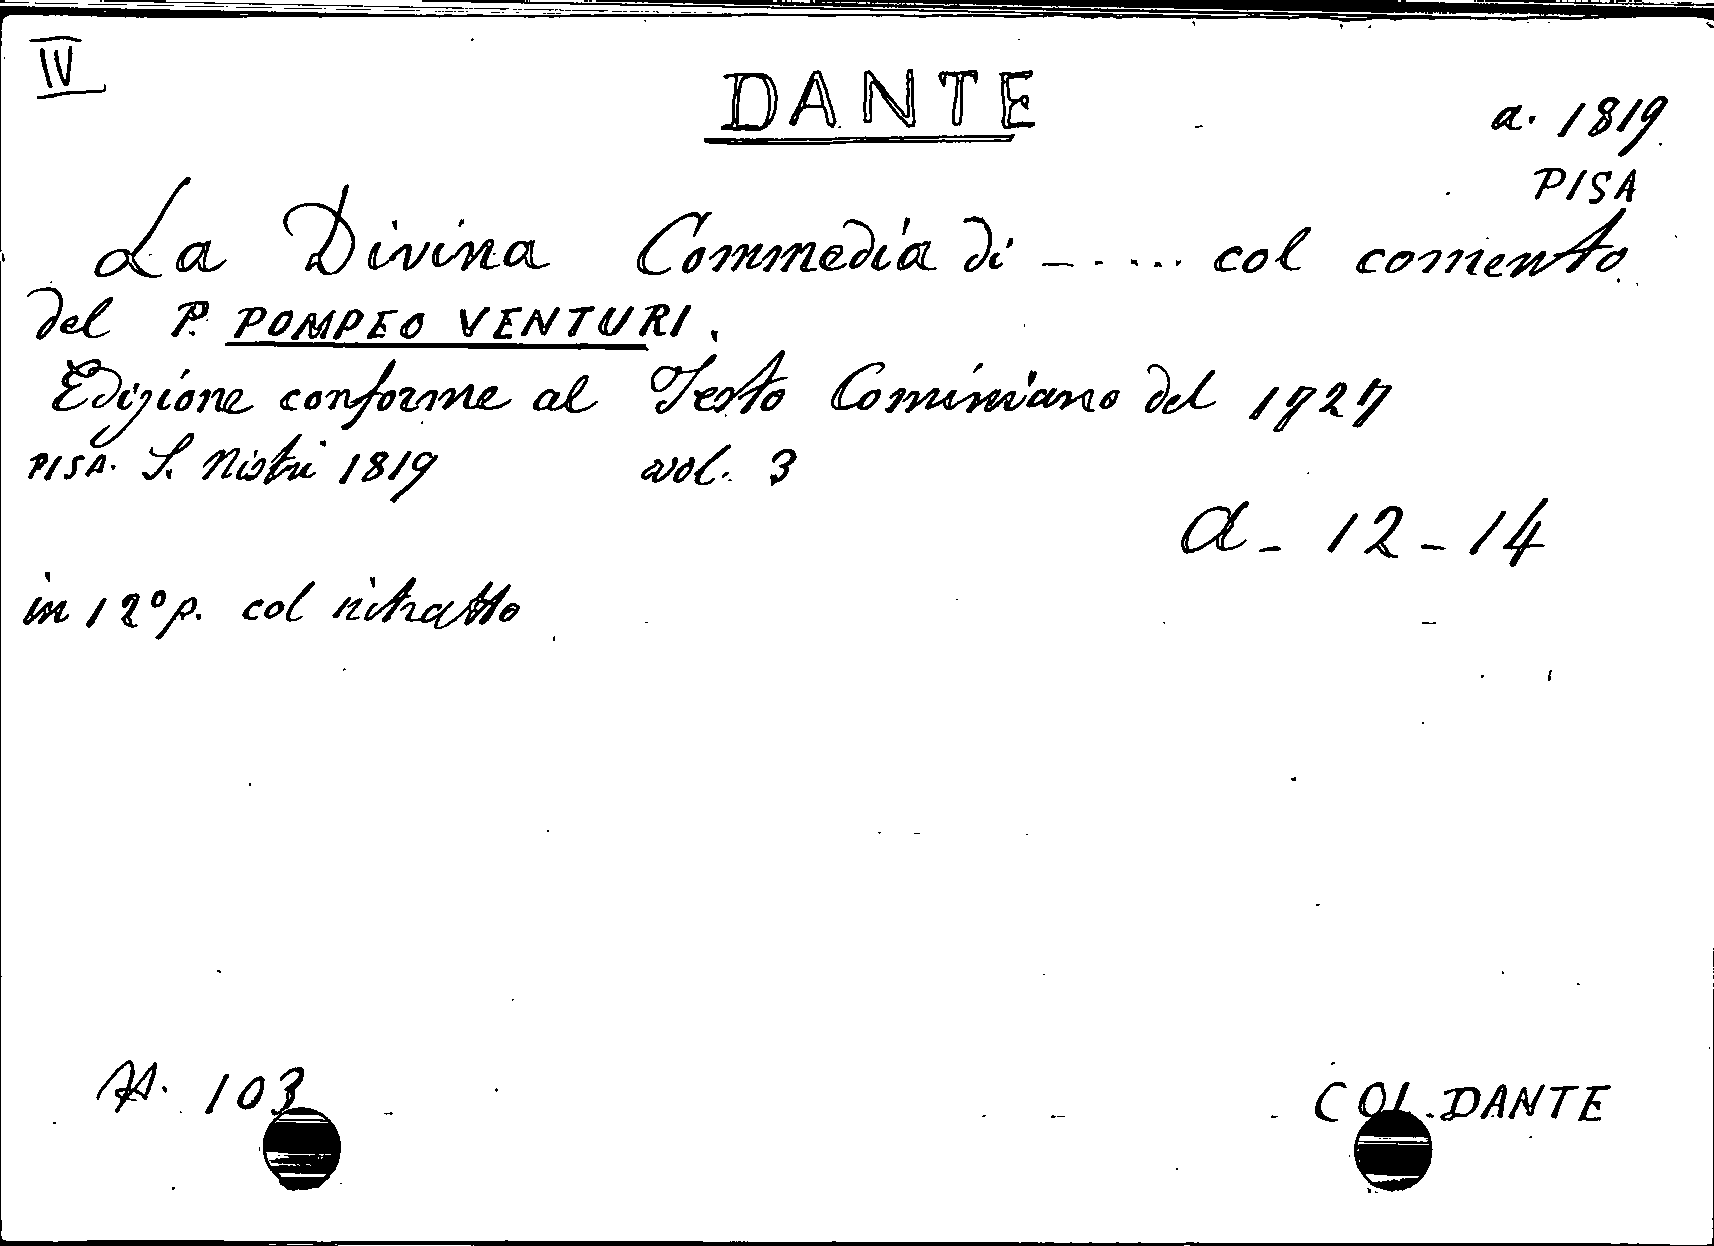 IV
DANTE
a. 1819
PISA
La Divina Commedia di - - .... col comento
del P. POMPEO VENTURI.
Edizione conforme al Testo Cominiano del 1727
PISA. S. Nistri 1819 vol. 3
a - 12 - 14
in 12° p. col ritratto
103
COL. DANTE